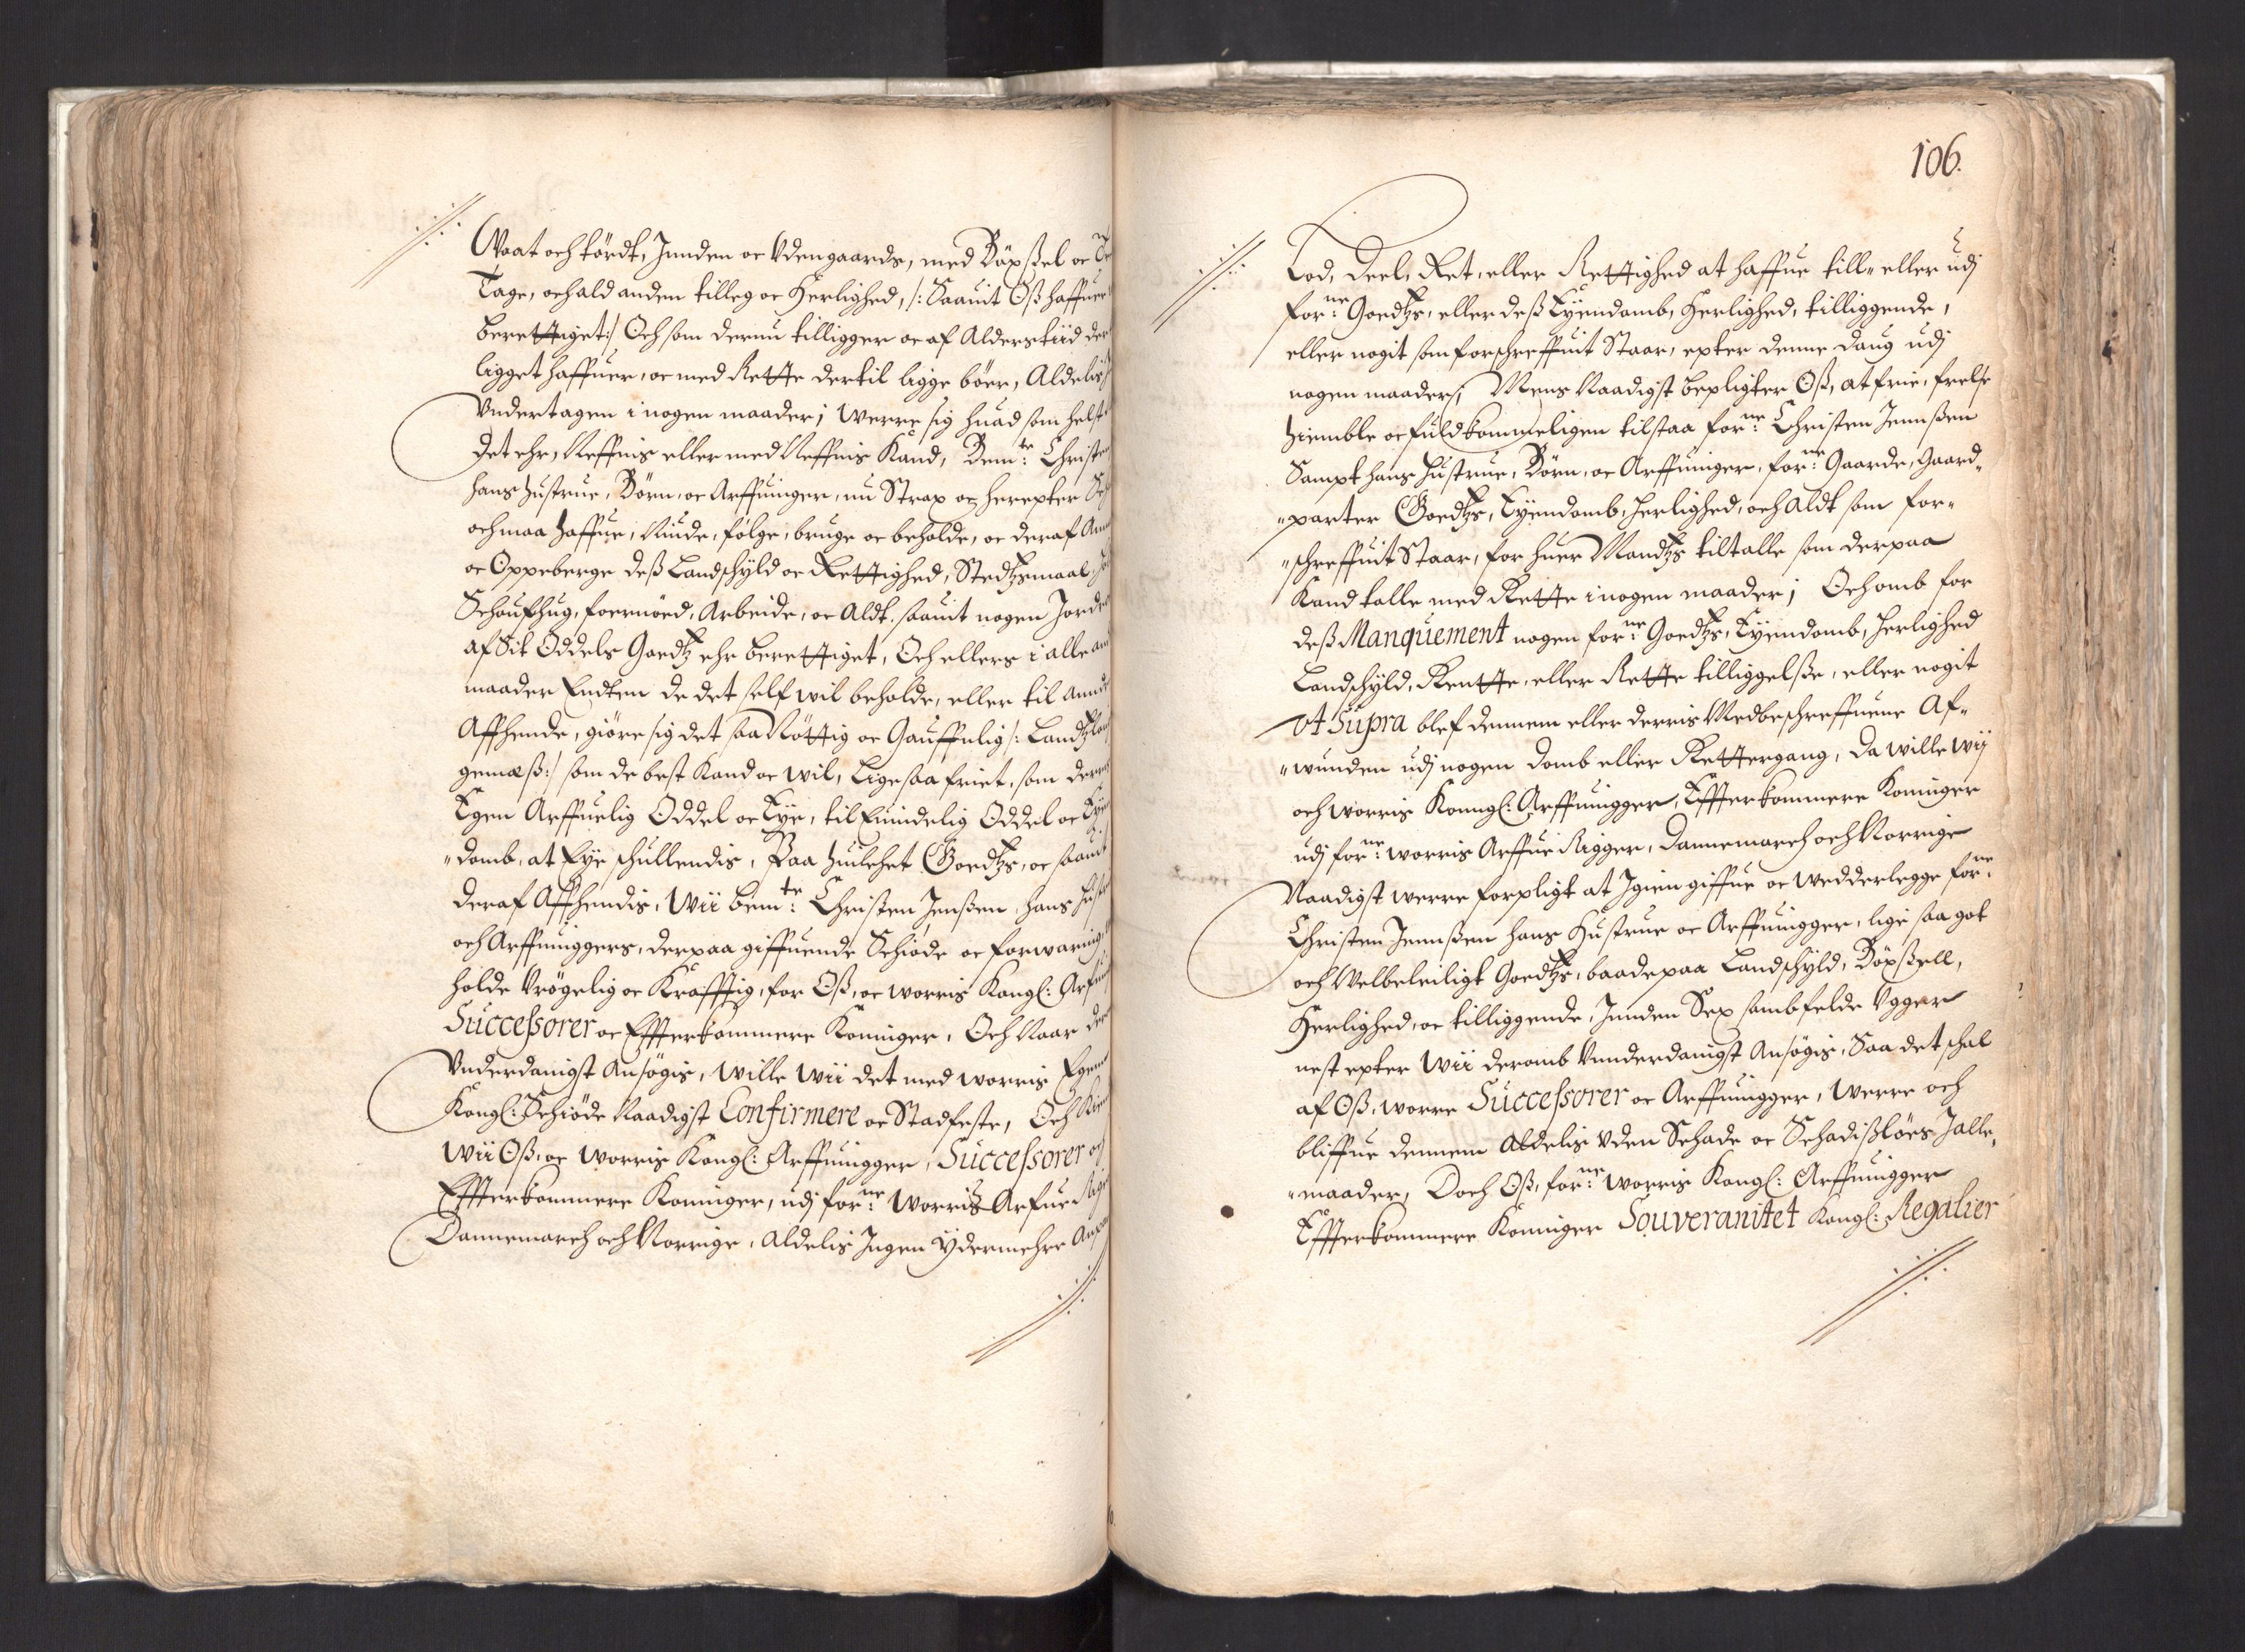 Waat och tördt, Jnnden oc Udengaards, med Böxßel oc
Tage, och ald anden tilleg oc Herlighed, /: Saauit Oß haffuer
berettiget :/ Och som dernu tilligger oc af Alderstiid der
ligget haffuer, oc med Rette dertil ligge böer, Aldelis
Undertagen i nogen maader; Werre sig huad som helst
det ehr, Neffnis eller med Neffnis Kand, Bem:te Christen
hans Hustrue, Börn, oc Arffuinger, nu Strax oc herepter
och maa haffue, Niude, følge, bruge oc beholde, oc deraf
oc Oppeberge deß Landschÿld oc Rettighed, Stedtzmaal,
Schoufhug, foernöed, Arbeide, oc Aldt, saauit nogen Jord
af Sit Oddels Goedtz ehr berettiget, Och ellers i alle
maader Endten de det self wil beholde, eller til Anndre
Affhende, giöre sig det saa Nöttig oc Gauffnlig /: Landtzlou
gemæß :/ som de best Kand oc wil, Ligesaa friet, som derris
Egen Arffuelig Oddel oc Eÿe, til Euindelig Oddel oc Eÿen
"domb, at Eÿe schullendis, Paa huilchet Goedtzs, oc saauit
deraf Affhendis, Wii bem:te Christen Jenßen, hans Hustrue
och Arffuinggers, derpaa giffuende Schiöde oc forwaring,
holde Urögelig oc Krafftig, for Oß, oc worris Kongl: Arfuing
Successorer oc Effterkommere Konninger, Och Naar der
Underdanigst Ansögis, Wille Wii det med worris Egen
Kongl: Schiöde Naadigst Confirmere oc Stadfeste, Och
Wii Oß, oc Worris Kongl: Arffuingger, Successorer och
Effterkommere Konninger, udj for:ne Worris Arfue Riger
Dannemarch och Norrige, Aldelis Jngen ÿdermehre
106.
Lod, Deel, Ret, eller Rettighed at haffue till, eller udj
for:ne Goedtzs, eller deß Eÿendomb, Herlighed, tilliggende,
eller nogit som forschreffuit Staar, epter denne Daug udj
nogen maader; Mens Naadigst bepligter Oß, at frie, frelse
hiemble oc fuldkommeligen tilstaa for:ne Christen Jennßen
Sampt hans Hustrue, Börn, oc Arffuinger, for:ne Gaarde, Gaard"
"parter Goedtzs, Eÿendomb, Herlighed, och Aldt som for"
"schreffuit Staar, for huer Mandtzs tiltalle som derpaa
Kand talle med Rette i nogen maader; Och omb for
deß Manquement nogen for:ne Goedtzs, Eÿendomb, Herlighed
Landschÿld, Rentte, eller Rette tilliggelße, eller nogit
Ut Supra blef dennem eller derris Medbeschreffuene Af"
"wunden udj nogen domb eller Rettergang, Da wille wij
och worris Konngl: Arffuingger, Effterkommere Konninger
udj for:ne worris Arffue Rigger, Dannemarch och Norrige
Naadigst werre forpligt at Jgien giffue oc Wedderlegge for:ne
Christen Jennßen hans Hustrue oc Arffuingger, lige saa got
och Welbeleiligt Goedtzs, baade paa Landschÿld, Böxßell,
Herlighed, oc tilliggende, Jnnden Sex sambfelde Ugger
nest epter Wii deromb Underdanigst Ansögis, Saa det schal
af Oß, worre Successorer oc Arffuingger, Werre och
bliffue dennem Aldelis Uden Schade oc Schadißlöes Jalle"
"maader, Doch Oß, for:ne Worris Kongl: Arffuingger
Effterkommere Konninger Souveranitet Kongl: Regalier